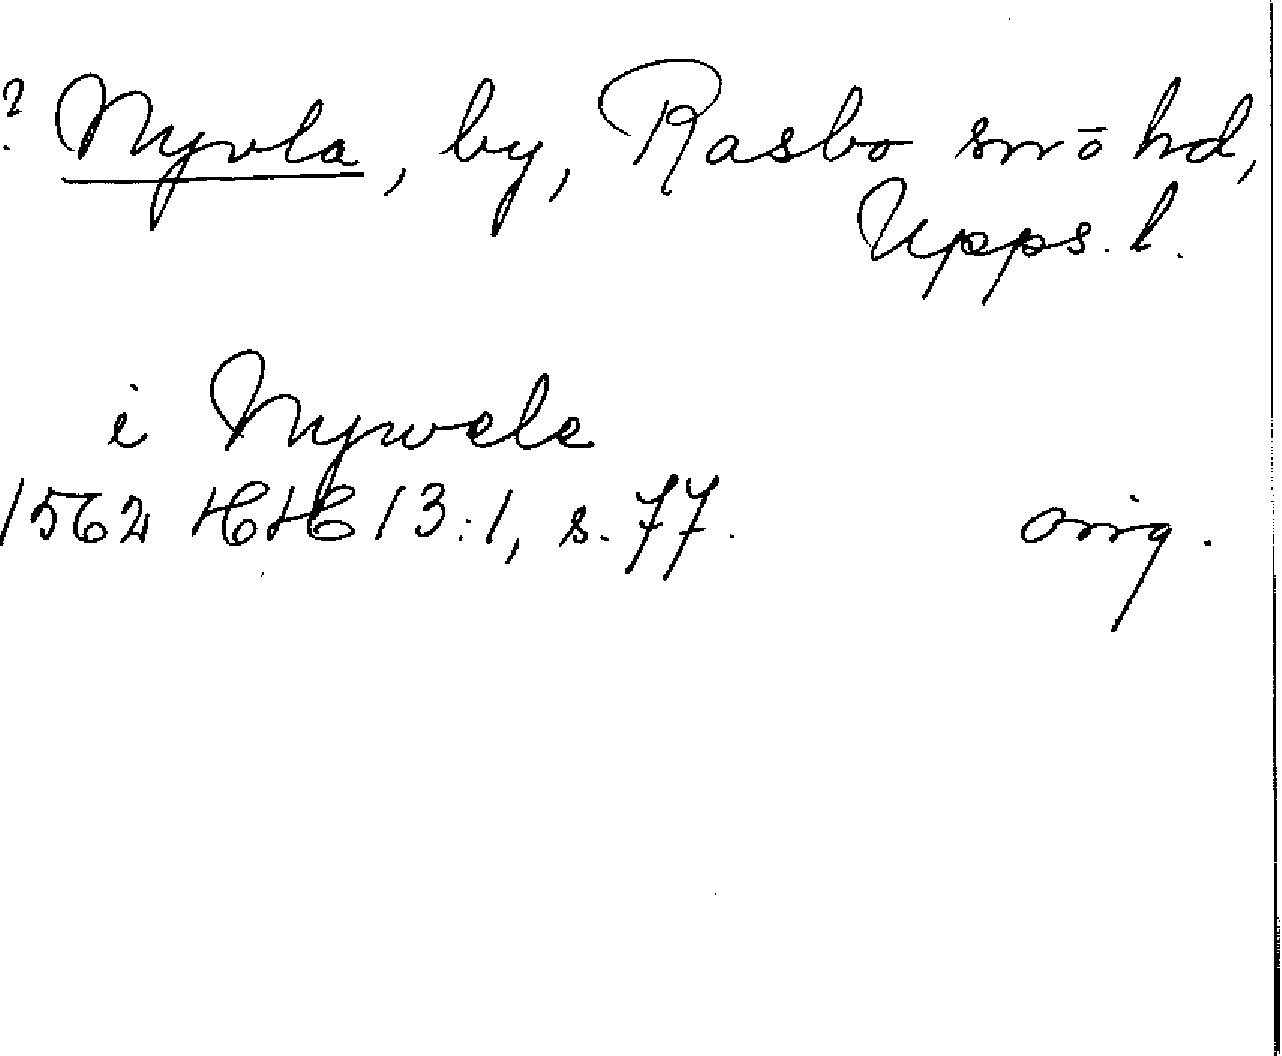 ? Nyvla, by, Rasbo sn o hd,
Upps. l.
i Nywele
1562 HH 13:1, s. 77.
orig.